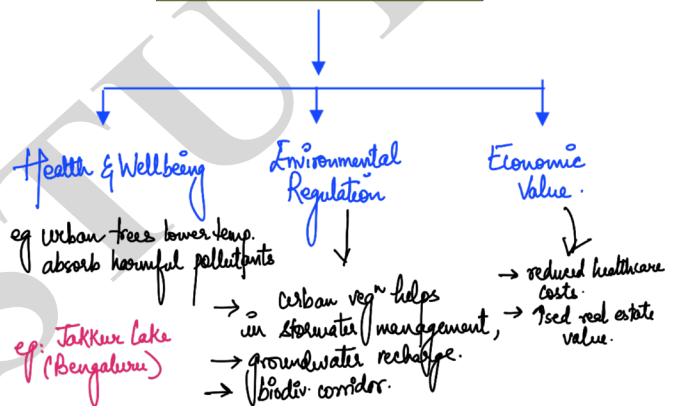 Health & Wellbeing
eg urban trees lower temp.
absorb harmful pollutants
eg: Jakkur Lake
(Bengaluru)
Environmental
Regulation
→ urban vegⁿ helps
in stormwater management,
→ groundwater recharge.
→ biodiv. corridor.
Economic
Value.
→ reduced healthcare
costs.
→ ↑sed real estate
value.